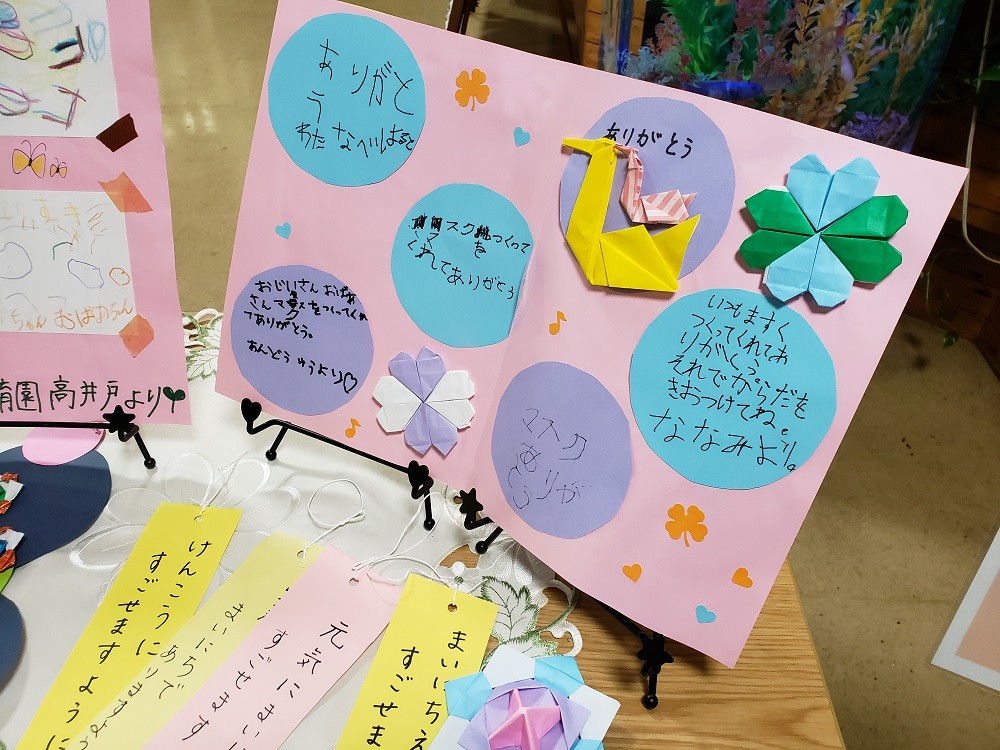 ありがと
う
わたなべ
ありがとう
スク
つくって
を
くれてありがとう
おじいさん おばあ
さんマスクをつくってくれ
てありがとう。
あんどう ゆうより♡
マスク
ありが
とう
いつもますく
つくってくれてあ
りがとう。
それでからだを
きおつけてね。
ななみより。
ちゃん おばあちゃん
育園 高井戸より
けんこうに
すごせますように
まいにち
ありますよう
元気に
すごせます
まいにちえ
すごせま